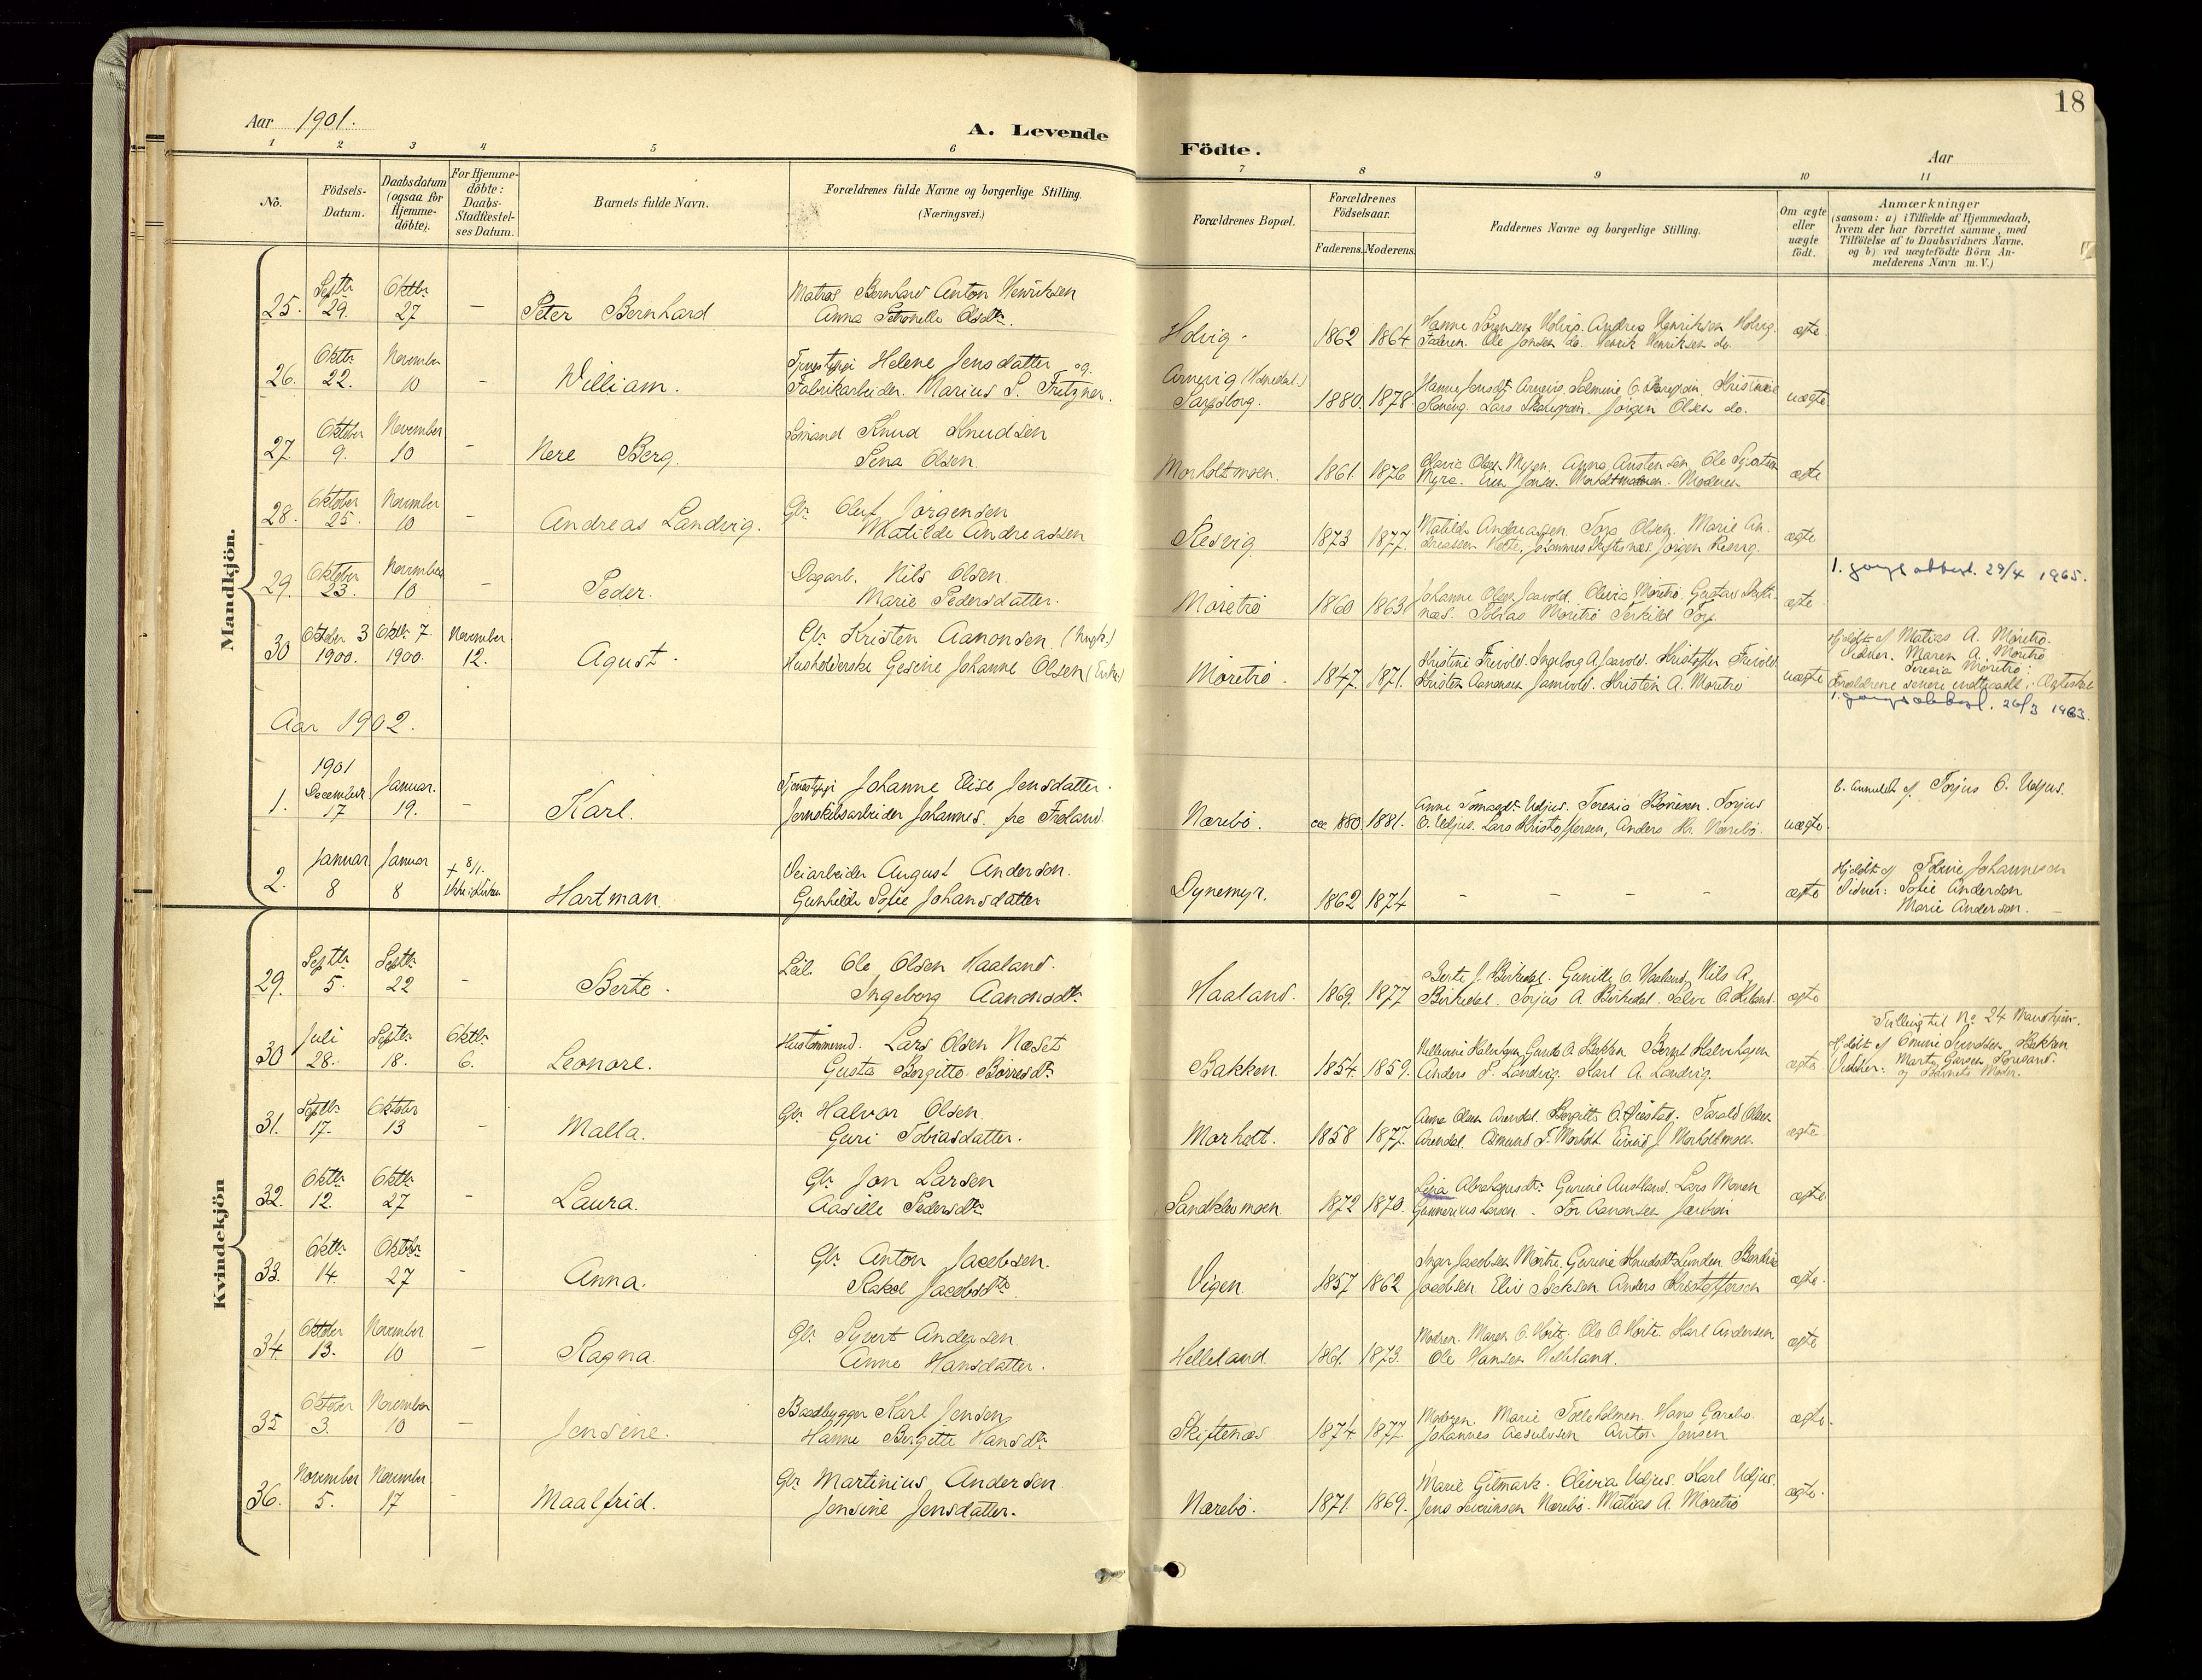 18
Aar 1901.
A. Levende
Födte.
Aar
1 2 3 4 5 6
7 8 9 10 11
No.
Födsels-
Datum.
Daabsdatum
(ogsaa for
Hjemme-
döbte).
For Hjemme-
döbte:
Daabs-
Stadfæstel-
ses Datum.
Barnets fulde Navn.
Forældrenes fulde Navne og borgerlige Stilling.
(Næringsvei.)
Forældrenes Bopæl.
Forældrenes
Födselsaar.
Faderens. Moderens.
Faddernes Navne og borgerlige Stilling.
Om ægte
eller
uægte
födt.
Anmærkninger
(saasom: a) i Tilfælde af Hjemmedaab,
hvem der har forrettet samme, med
Tilföielse af to Daabsvidners Navne,
og b) ved uægtefödte Börn An-
melderens Navn m. V.)
Mandkjön.
25. Septbr 29. Oktbr 27 - Peter Bernhard
Matros Bernhard Anton Henriksen
Anna Petronelle Olsdtr.
Holvig. 1862 1864
Hanne Sörensen Holvig. Andrea Henriksen Holvig.
Faderen. Ole Jensen do. Henrik Henriksen do.
ægte
26. Oktbr 22. November 10 - William.
Tjenestepige Helene Jensdatter og
Fabrikarbeider. Marius S. Fritzner.
Arnevig (Homedal.)
Sarpsborg. 1880. 1878.
Hanne Jensdt. Arnevig.
Lars Jörgen Olsen do.
uægte
27 Oktober 9. November 10 - Nere Berg.
Sömand Knud Knudsen
Sena Olsen.
Morholtmoen. 1861. 1876
Olavie Olsen Myren. Anna Austensen. Ole Syvertsen
Myra. Morholtmoen. Moderen
ægte
28. Oktober 25. November 10 - Andreas Landvig.
Gbr. Oluf Jörgensen
Matilde Andreassen
Resvig 1873 1877.
Matilde Andreassen. Torp Olsen. Marie An-
dreassen Johannes Skiftenæs. Jörgen Resvig.
ægte
29. Oktober 23. November 10 - Peder.
Dagarb. Nils Olsen.
Marie Pedersdatter.
Moretrö 1860 1863
Johanne Olsen Jaavold. Olivia Möretrö. Gustav Skifte-
næs. Tobias Moretrö Terkild Torp.
ægte
1. gangs attest. 29/4 1965.
30 Oktober 3 1900. Oktbr 7. 1900. November 12. Agust.
Gbr. Kristen Aanonsen (Ungk.)
Husholderske Gesine Johanne Olsen (Enke)
Möretrö. 1847. 1871.
Kristine Trevold. Ingeborg A. Jaavold. Kristoffer Trevold
Kristen Aanonsen Jaavold. Kristen A. Moretrö
uægte
Hjdöbt af Matias A. Möretrö.
Vidner. Maren A. Moretrö
Teresia Möretrö.
Forældrene senere indtraadt i Ægteskab
1. gangs attest. 26/3 1963.
Aar 1902.
1. 1901 December 17 Januar. 19. - Karl.
Tjenestepige Johanne Elise Jensdatter.
Jernskibsarbeider Johannes. fra Froland.
Nærebö. 1880. 1881.
Anne Tomasdt. Udjus. Teresia Törjus
O. Udjus. Lars Kristoffersen, Anders Kr. Nærebö.
uægte
b. anmeldt af Torjus O. Udjus.
2. Januar 8 Januar 8 + 8/1. Ikke i Kirken Hartman.
Veiarbeider August Anderson.
Gunhilde Sofie Johansdatter
Dynemyr. 1862 1874 - - - - ægte
Hjdöbt af Johannesen
Vidner: Sofie Anderson
Marie Anderson. -
Kvindekjön
29. Septbr 5. Septbr 22 - Berte.
Leil. Ole Olsen Haaland.
Ingeborg Aanonsdtr.
Haaland. 1869. 1877
Berte J. Birkedal. Gunille O. Haaland, Nils A.
Birkedal. Torjus A. Birkedal. Salve O. Haaland.
ægte
30 Juli 28. Septbr 18. Oktbr. 6. Leonore.
Hustömmermd. Lars Olsen Næset
Gusta Bergitte Börresdtr.
Bakken. 1854. 1859.
Gunda A. Bakken Bernt
Anders S. Landvig. Karl A. Landvig.
ægte
Tvilling til No. 24 Mandkjön.
Hjdöbt af Bakken
Vidner: Marte
og Barnets Moder.
31. Septbr 17. Oktober 13 - Malla.
Gbr. Halvor Olsen.
Guri Tobiasdatter.
Morholt. 1858 1877.
Anna Olsen Arendal. Bergitte O. Tarald Olsen
Arendal. Asmund T. Morholt. Eivind J. Morholtmoen
ægte
32. Oktbr 12. Oktbr 27 - Laura.
Gbr. Jon Larsen
Aasille Pedersdtr.
Sandklevmoen. 1872 1870.
Lena Abrahamsdtr. Gurine Austland. Lars Moen
Gunnerius Larsen. Tor Aanonsen
ægte
33. Oktbr. 14. Oktbr. 27 - Anna.
Gbr. Anton Jacobsen.
Rakel Jacobsdtr.
Vigen. 1857 1862
Inger Jacobsen Gurine Knudsdt. Lunden.
Jacobsen Elis Isaksen Anders Kristoffersen
ægte.
34. Oktober 13. November 10 - Ragna.
Gbr. Syvert Andersen
Anne Hansdatter.
Helleland. 1861. 1873.
Modren. Maren O. Horte. Ole O. Horte. Karl Andersen
Ole Hansen Helleland.
ægte
35 Oktober 3. November 10 - Jensine.
Baadbygger Karl Jensen
Hanne Birgitte Hansdtr.
Skiftenæs 1874. 1877.
Modren. Marie Tolleholmen. Hans
Johannes Anton Jensen
ægte.
36. November 5. November 17 - Maalfrid.
Gbr. Martinius Andersen
Jensine Jensdatter.
Nærebö. 1871. 1869.
Marie Gitmark. Olivia Udjus. Karl Udjus.
Jens Severinsen Nærebö. Matias A. Moretrö
ægte.